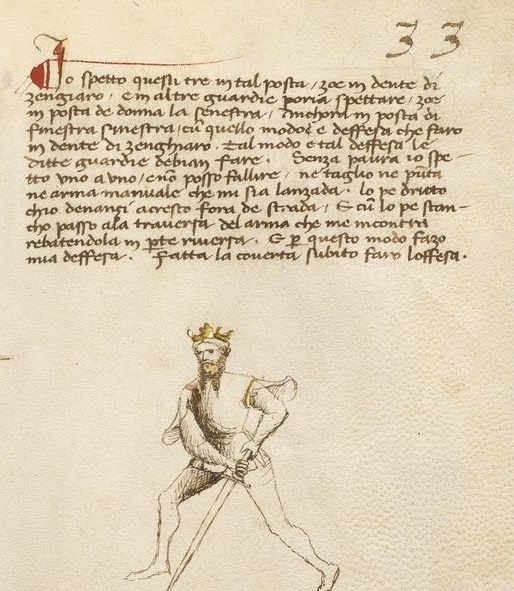 33
Io spetto questi tre in tal posta, zoe in dente di
zengiaro, e in altre guardie poria spettare, zoe
in posta de donna la senestra, Anchora in posta di
finestra sinestra, cū quello modo e deffesa che faro
in dente di zenghiaro. Tal modo e tal deffesa le
ditte guardie debian fare. Senza paura io spe-
tto uno a uno, e nō posso fallire, ne taglio ne punta
ne arma manuale che mi sia lanzada. lo pe dritto
chio denanci acresco fora de strada, E cū lo pe stan-
cho passo ala traversa del arma che me incontra
rebatendola in pte riversa. E p questo modo fazo
mia deffesa. Fatta la coverta subito faro loffesa.